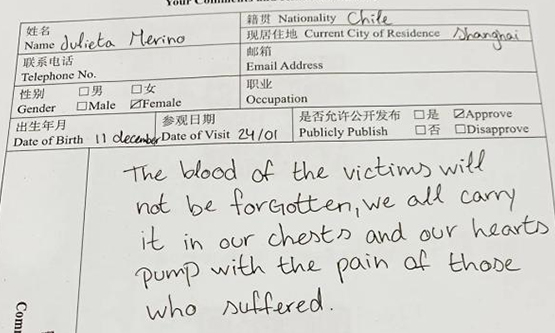 Your Comments and
姓名
Name Julieta Merino
籍贯 Nationality Chile
现居住地 Current City of Residence Shanghai
联系电话
Telephone No.
邮箱
Email Address
性别 □男 □女
Gender □Male ☑Female
职业
Occupation
出生年月
Date of Birth 11 december
参观日期
Date of Visit 24/01
是否允许公开发布 □是 ☑Approve
Publicly Publish □否 □Disapprove
The blood of the victims will
not be forgotten, we all carry
it in our chests and our hearts
pump with the pain of those
who suffered.
Com